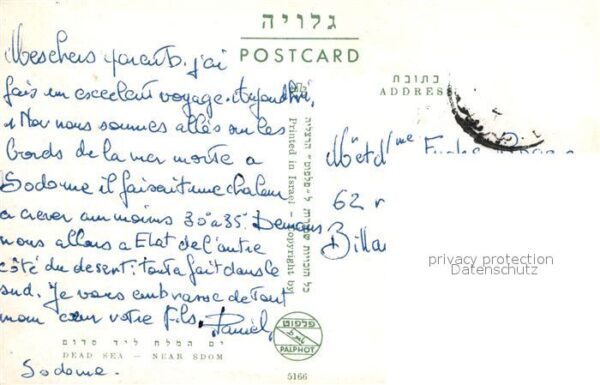 גלויה
POSTCARD
כתובת
ADDRESS
Mes chers parents. j'ai
fais un excellent voyage. Aujourd'hui,
1 Nov nous sommes allés sur les
bords de la mer morte a
Sodome il faisait une chaleur
a crever au moins 30° a 35°. Demain
nous allons a Elat de l'autre
côté du desert: tout a fait dans le
sud. Je vous embrasse de tout
mon cœur votre Fils. Daniel
Sodome.
ים המלח ליד סדום
DEAD SEA — NEAR SDOM
Printed in Israel - Copyright by
כל הזכויות שמורות ל"פלפוט" הרצליה
פלפוט
PALPHOT
5166
M et Mme
62 r
Billa
privacy protection
Datenschutz